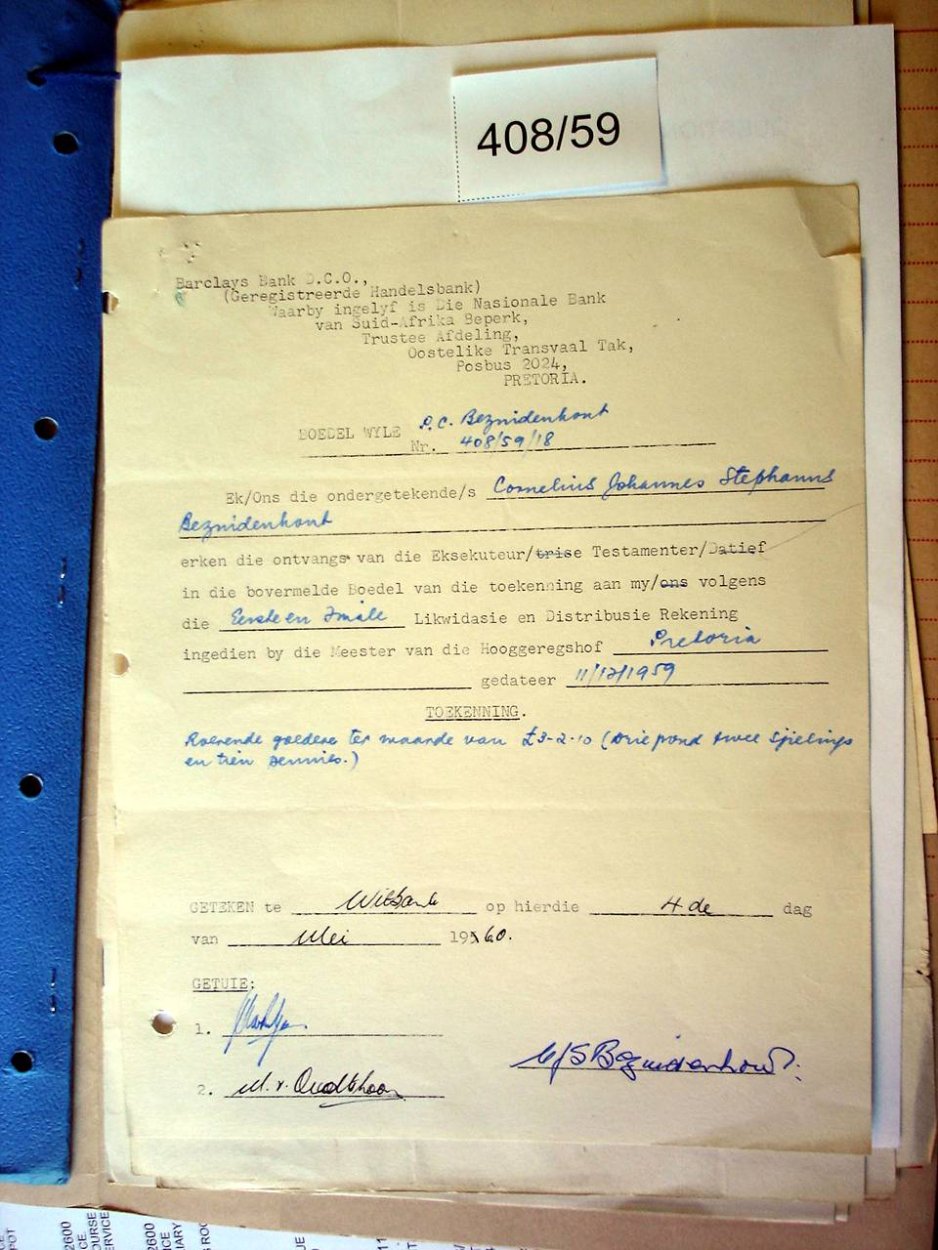 408/59
Barclays Bank D.C.O.,
(Geregistreerde Handelsbank)
Waarby ingelyf is Die Nasionale Bank
van Suid-Afrika Beperk,
Trustee Afdeling,
Oostelike Transvaal Tak,
Posbus 2024,
PRETORIA.
BOEDEL WYLE P.C. Beznidenhout
Nr. 408/59/18
Ek/Ons die ondergetekende/s Cornelius Johannes Stephanus
Beznidenhout
erken die ontvangs van die Eksekuteur/trise Testamenter/Datief
in die bovermelde Boedel van die toekenning aan my/ons volgens
die Eerste en Finale Likwidasie en Distribusie Rekening
ingedien by die Meester van die Hooggeregshof Pretoria
gedateer 11/12/1959
TOEKENNING.
Roerende goedere ter waarde van £3-2-10 (Drie pond twee sjielings
en tien pennies.)
GETEKEN te Witbank op hierdie 4 de dag
van Mei 1960.
GETUIE:
1.
2. M. v. Oudtshoorn
CJS Bezuidenhout
2600
2600